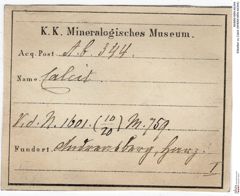 K. K. Mineralogisches Museum.
Acq. Post A.b. 344.
Name. Calcit.
V.d.N. 1601. (10/20) M. 759
Fundort. Andreasberg, Harz.
I